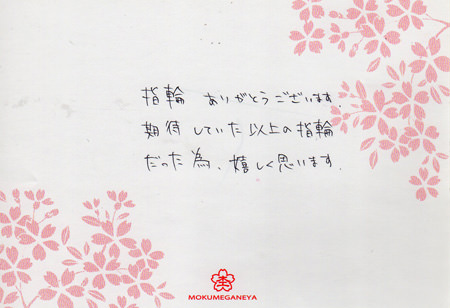 指輪 ありがとうございます.
期待していた以上の指輪
だった為、嬉しく思います.
杢
MOKUMEGANEYA